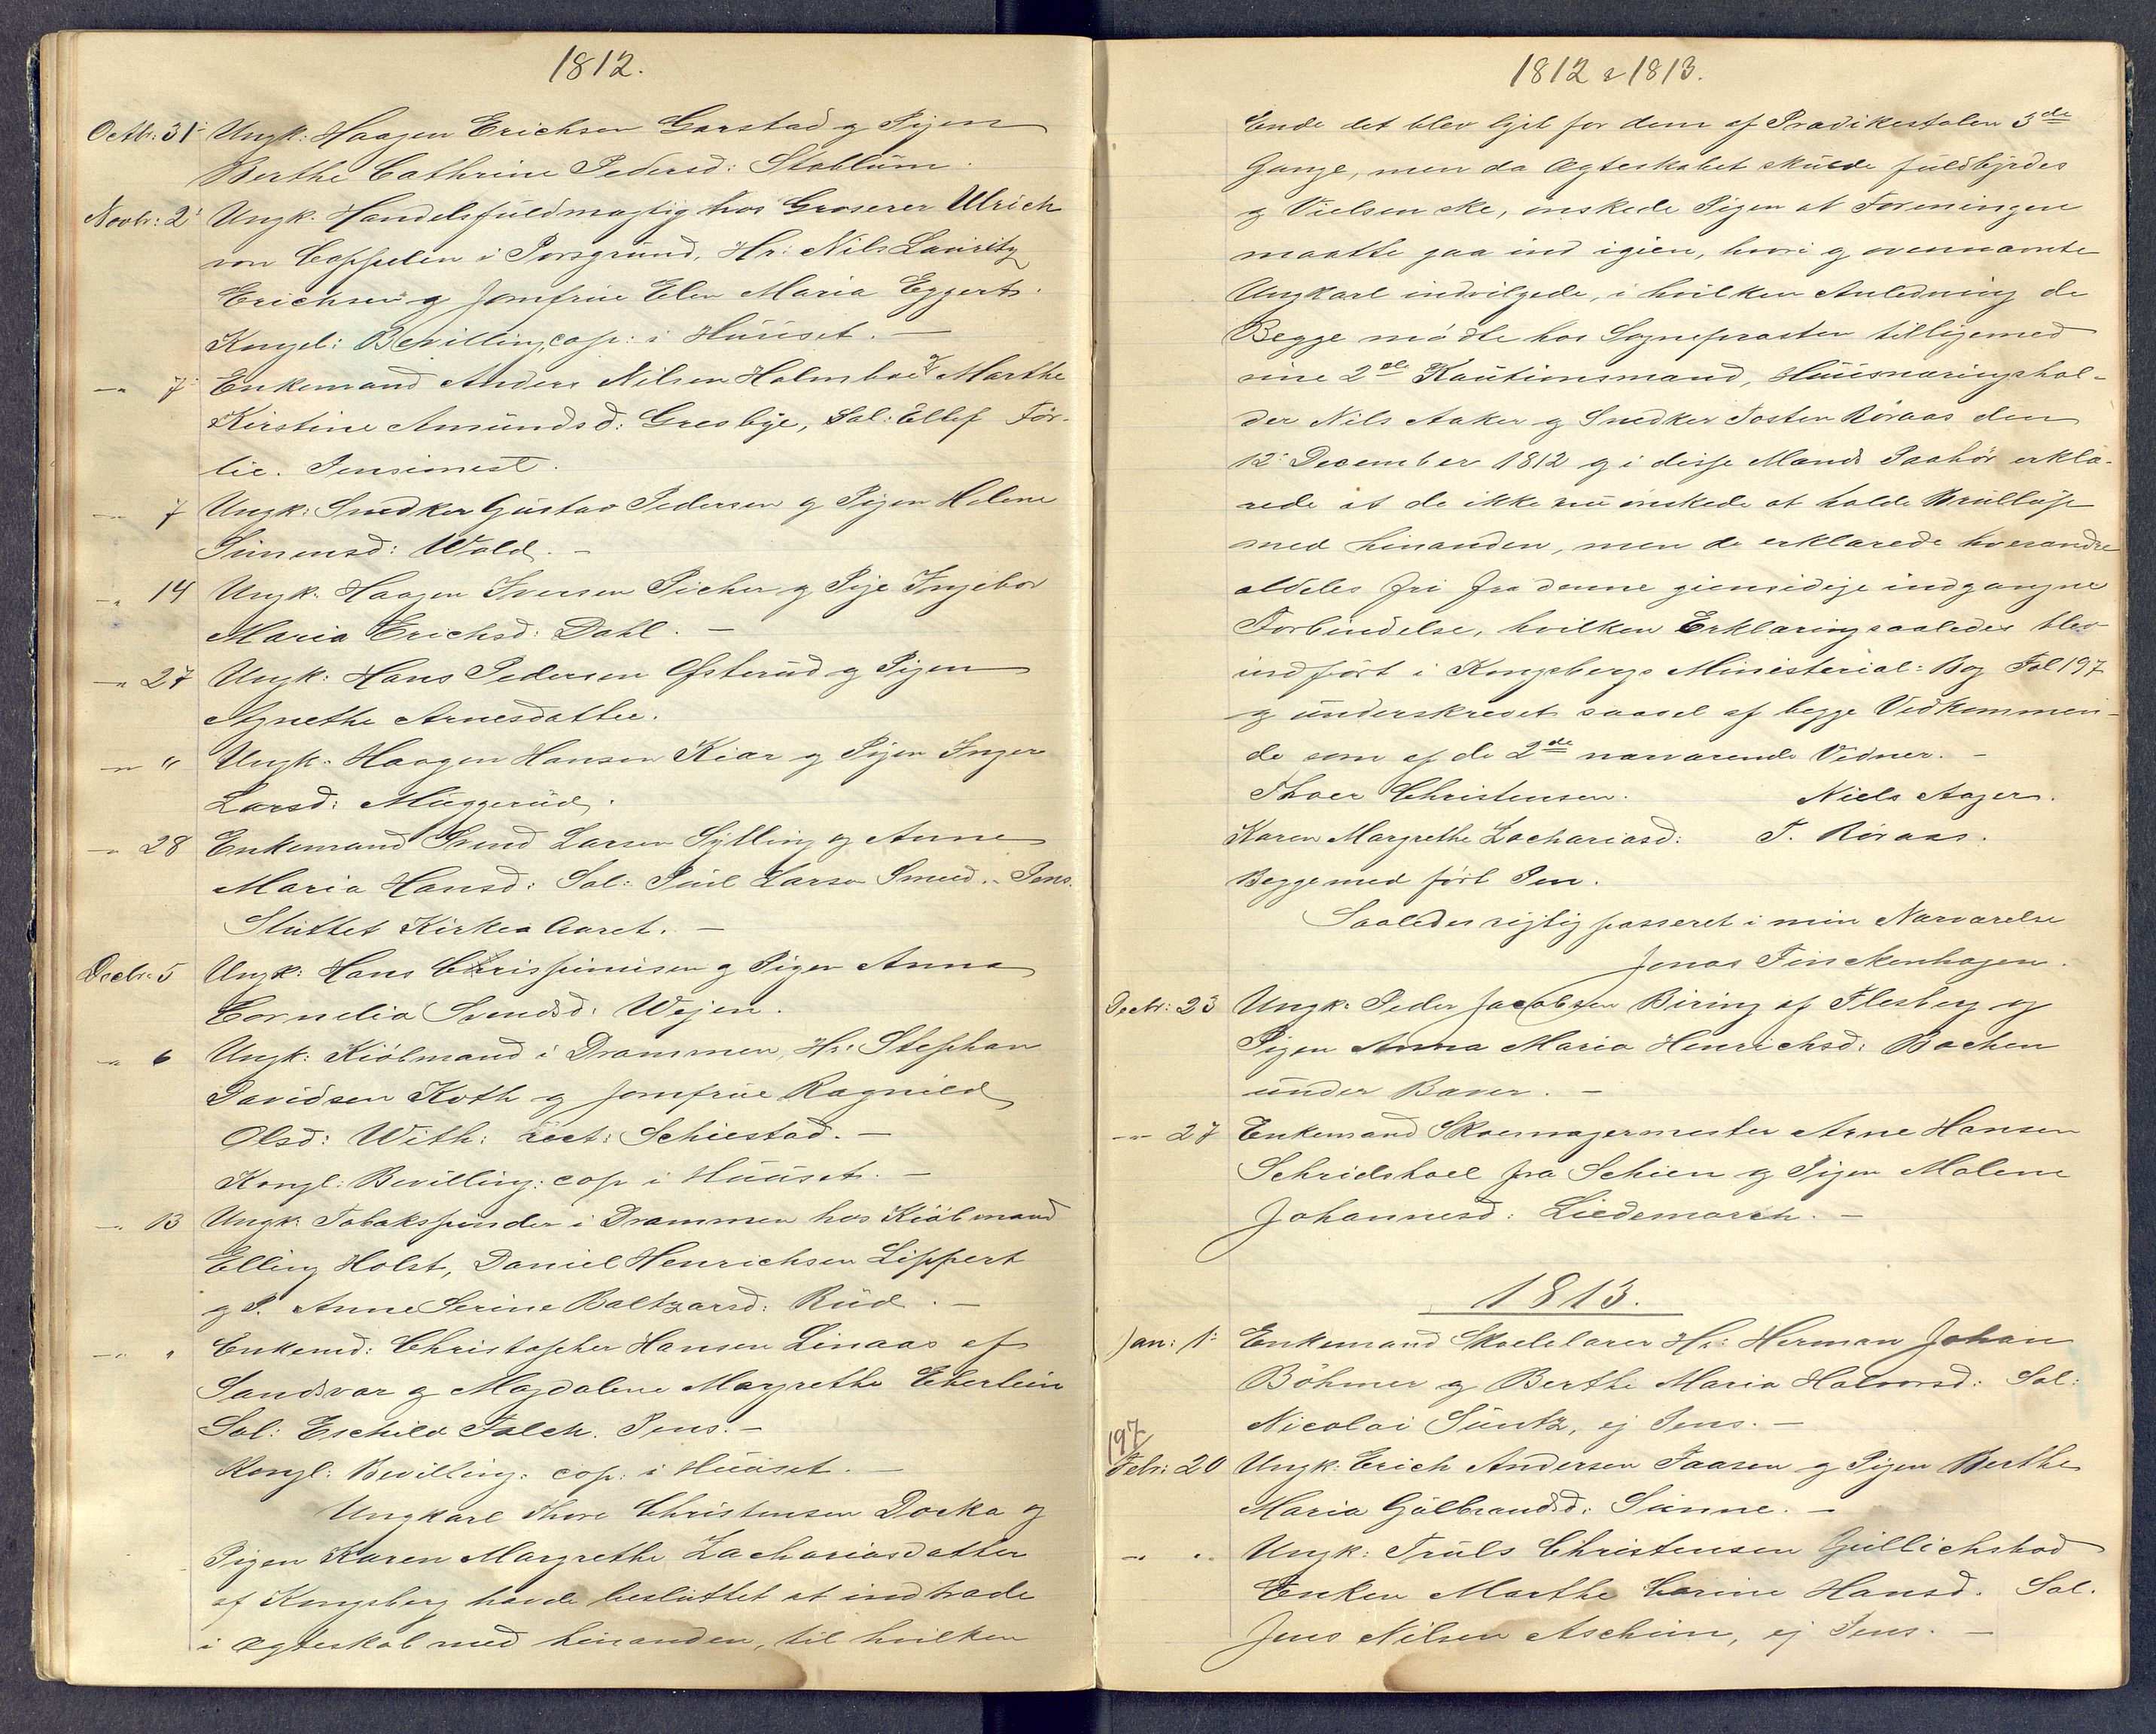 1812.
Octbr: 31 Ungk: Haagen Erichsen Garstad og Pigen
Berthe Cathrine Pedersd: Stablum.
Novbr: 2 Ungk. Handelsfuldmægtig hos Groserer Ulrich
von Cappelen i Porsgrund, Hr: Nils Lauritz
Erichsen og Jomfrue Elen Maria Eggerts.
Kongel: Bevilling, cop: i Huuset. —
—" 7 Enkemand Anders Nilsen Holmboe og Marthe
Kirstine Amundsd: Gresbye, Sal: Ellef För-
lie. Pensionist.
—" 7 Ungk: Snedker Gustav Pedersen og Pigen Helene
Simensd: Wold. —
—" 14 Ungk. Haagen Iversen Picher og Pige Ingebor
Maria Erichsd: Dahl. —
—" 27 Ungk: Hans Pedersen Østerud og Pigen
Agnethe Arnesdatter.
—" " Ungk. Haagen Hansen Kiær og Pigen Inger
Larsd: Muggerud.
—" 28 Enkemand Svend Larsen Sylling og Anne
Maria Hansd: Sal: Poul Larsen Smed. - Pens.
Sluttet Kirkea Aaret. —
Decbr: 5 Ungk: Hans Chrispinusen og Pigen Anna
Cornelia Svendsd: Wejen.
—" 6 Ungk: Kiölmand i Drammen, Hr: Stephan
Davidsen Koth og Jomfrue Ragnild
Olsd: With: rect: Schiestad. —
Kongl: Bevilling: cop i Huuset. —
—" 13 Ungk: Tobakspinder i Drammen hos Kiöbmand
Elling Holst, Daniel Henrichsen Lippert
og P. Anne Serine Baltzarsd: Rud. —
—" " Enkemd: Christopher Hansen Linaas af
Sandsvær og Magdalene Margrethe Eberlein
Sal: Eschild Falch. Pens. —
Kongl: Bevilling: cop: i Huuset. —
Ungkarl Thore Christensen Docka og
Pigen Karen Margrethe Zachariasdatter
af Kongsberg havde besluttet at indtræde
i Ægteskab med hinanden, til hvilken
1812 & 1813.
Ende det blev lyst for dem af Prædikestolen 3de
Gange, men da Ægteskabet skulde fuldbyrdes
og Vielsen ske, ønskede Pigen at Foreningen
maatte gaa ind igien, hvori og ovennævnte
Ungkarl indvilgede, i hvilken Anledning de
Begge mödte hos Sognepræsten tilligemed
sine 2de Kautionsmænd, Huusnæringshol-
der Nils Aaker og Snedker Tosten Röraas den
12: December 1812 og i disse Mænds Paahör erklæ-
rede at de ikke nu ønskede at holde Brullöp
med hinanden, men de erklærede hverandre
aldeles fri fra denne giensidige indgangne
Forbindelse, hvilken Erklæring saaledes blev
indfört i Kongsbergs Ministerial: Bog Fol 197
og underskrevet saavel af begge Vedkommen-
de som af de 2de nærværende Vidner. —
Thoer Christensen. Niels Aager.
Karen Margrethe Zachariasd: T. Röraas.
Begge med fört Pen.
Saaledes rigtig passeret i min Nærværelse
Jonas Finckenhagen.
Decbr: 23 Ungk. Peder Jacobsen Biring af Flesberg og
Pigen Anna Maria Henrichsd: Bachen
under Baver. —
—" 27 Enkemand Skoemagermester Arne Hansen
Schridshoel fra Schien og Pigen Malene
Johannesd: Liedemarch. —
1813.
Jan: 1: Enkemand Skolelærer Hr: Herman Johan
Böhmer og Berthe Maria Halvorsd: Sal:
Nicolai Suntz, ej Pens. —
197
Febr: 20 Ungk: Erich Andersen Faasen og Pigen Berthe
Maria Gulbrandsd: Sunne. —
—" " Ungk: Truls Christensen Gullichstad
Enken Marthe Carine Hansd. Sal.
Jens Nilsen Aschim, ej Pens. —